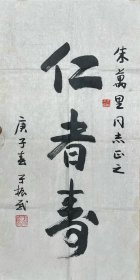 朱万里同志正之
仁者寿
庚子春 于振武